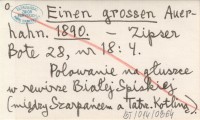 Einen grossen Auer-
hahn. 1890. – Zipser
Bote 28, nr 18: 4.
Polowanie na głuszce
w rewirze Białej Spiskiej
(między Szarpańcem a Tatrz. Kotliną).